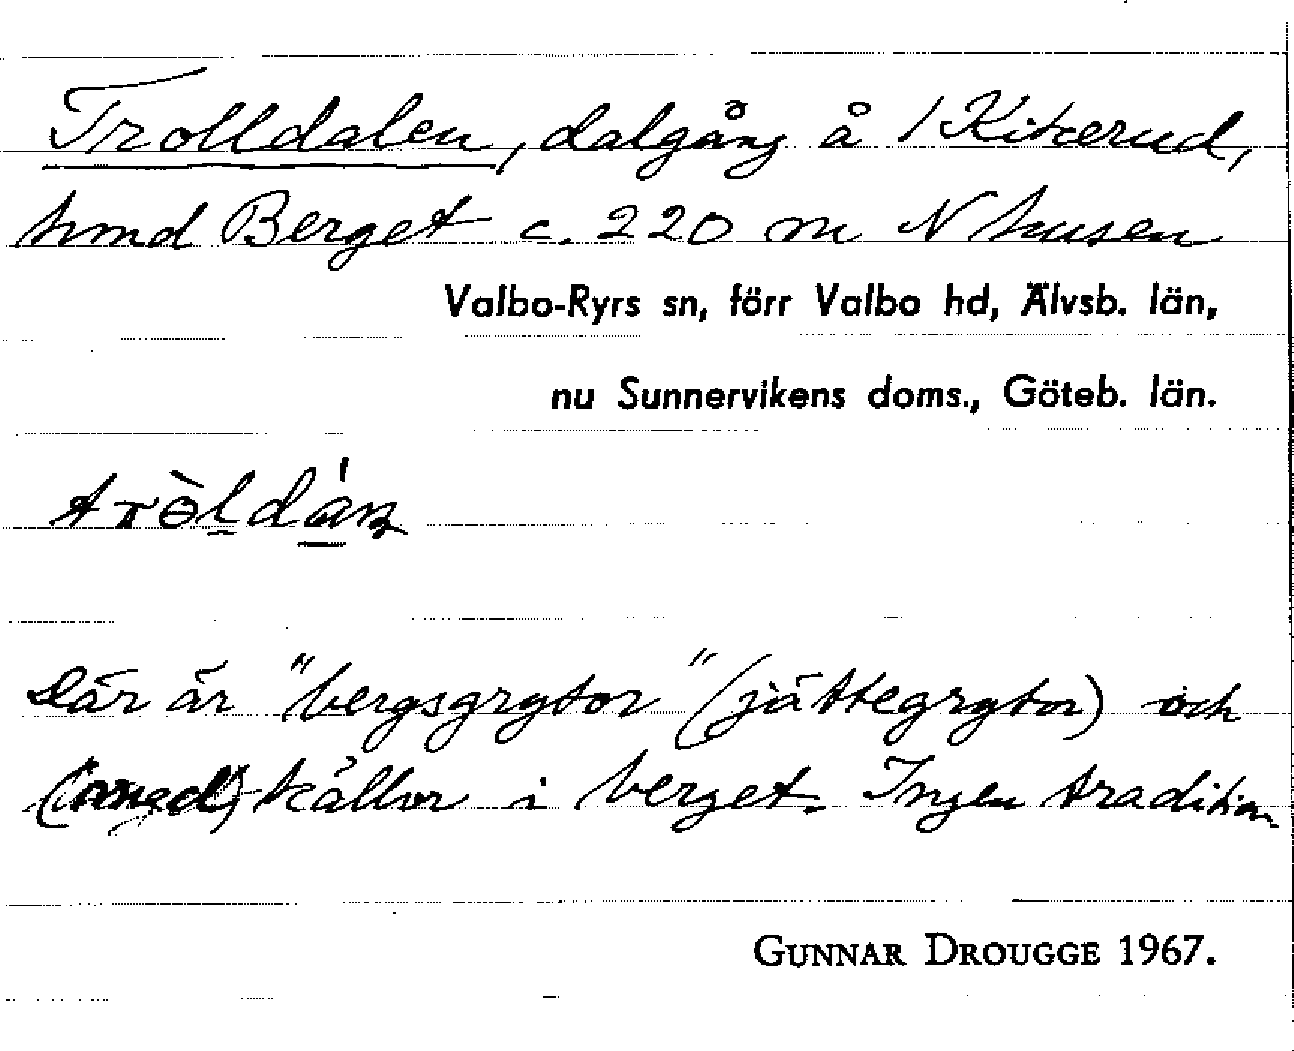 Trolldalen, dalgång å 1 Kitcerud,
hmd Berget c. 220 m N husen
Valbo-Ryrs sn, förr Valbo hd, Älvsb. län,
nu Sunnervikens doms., Göteb. län.
Där är "bergsgrytor" (jättegrytor) och
källor i berget. Ingen tradition
GUNNAR DROUGGE 1967.